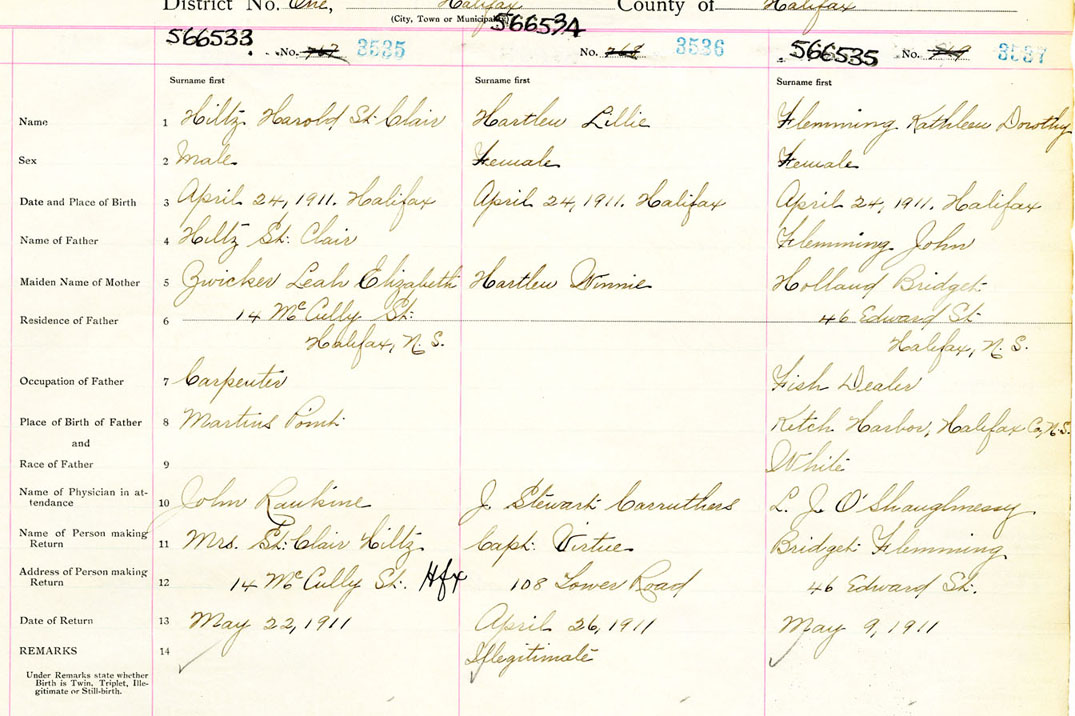 District No. One, Halifax County of Halifax
(City, Town or Municipality)
566533 566534 566535
No. 767 3535 No. 768 3536 No. 769 3537
Surname first Surname first Surname first
Name 1 Hiltz Harold St. Clair Hartlew Lillie Flemming Kathleen Dorothy
Sex 2 Male Female Female
Date and Place of Birth 3 April 24, 1911. Halifax April 24, 1911. Halifax April 24, 1911. Halifax
Name of Father 4 Hiltz St. Clair Flemming John
Maiden Name of Mother 5 Zwicker Leah Elizabeth Hartlew Winnie Holland Bridget
Residence of Father 6 14 McCully St. 46 Edward St
Halifax, N.S. Halifax, N.S.
Occupation of Father 7 Carpenter Fish Dealer
Place of Birth of Father 8 Martins Point Ketch Harbor, Halifax Co, N.S.
and
Race of Father 9 White
Name of Physician in at-
tendance 10 John Rankine J. Stewart Carruthers L. J. O'Shaughnessy
Name of Person making
Return 11 Mrs. St. Clair Hiltz Capt. Virtue Bridget Flemming
Address of Person making
Return 12 14 McCully St. Hfx 108 Lower Road 46 Edward St.
Date of Return 13 May 22, 1911 April 26, 1911 May 9, 1911
REMARKS 14 Illegitimate
Under Remarks state whether
Birth is Twin, Triplet, Ille-
gitimate or Still-birth.